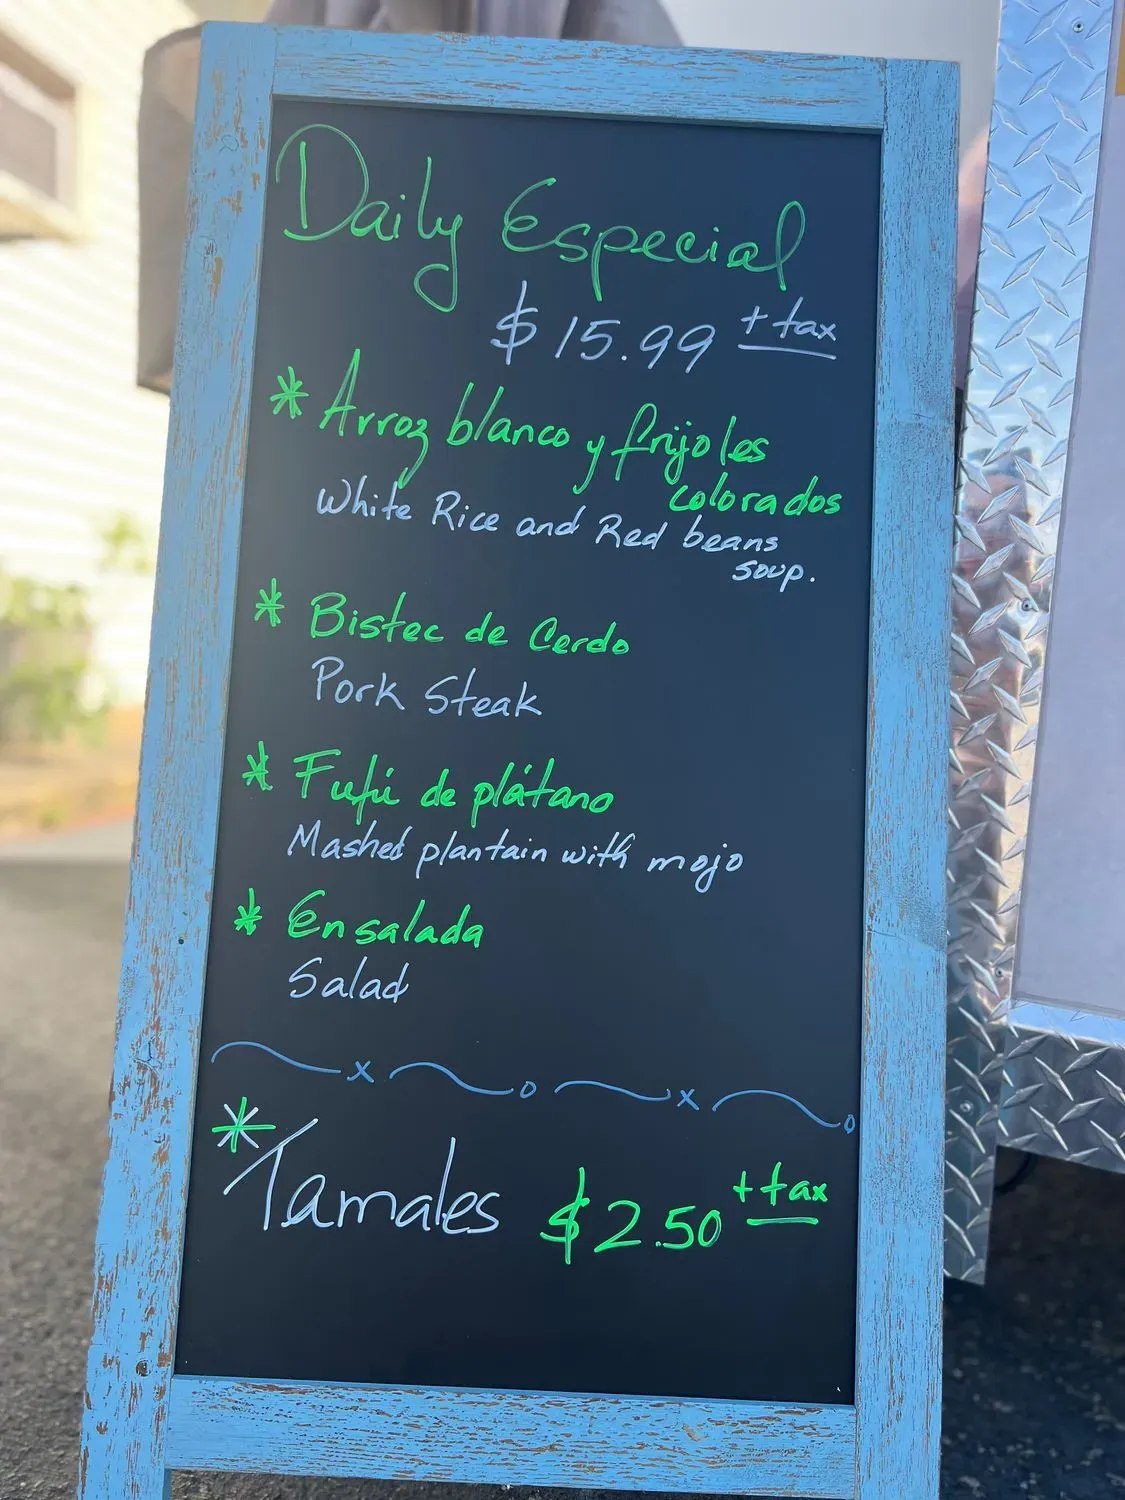 Daily Especial
$15.99 + tax
* Arroz blanco y frijoles
colorados
White Rice and Red beans
soup.
* Bistec de Cerdo
Pork Steak
* Fufú de plátano
Mashed plantain with mojo
* Ensalada
Salad
* Tamales $2.50 + tax